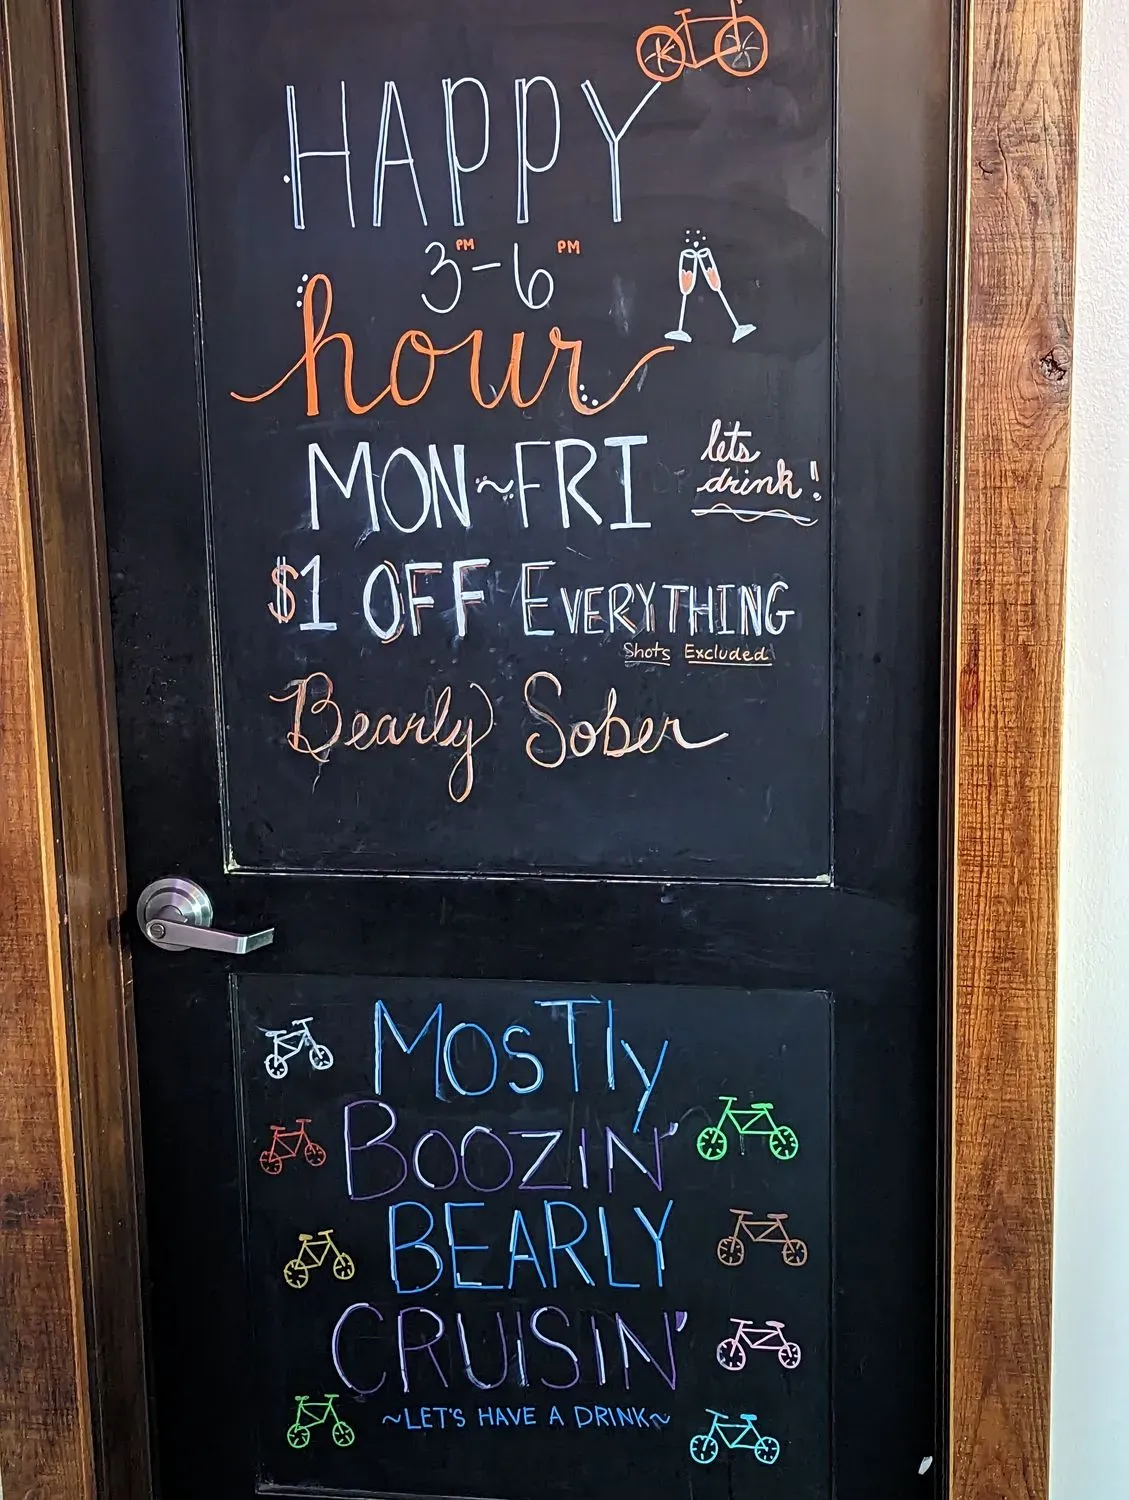 HAPPY
3PM-6PM
hour
MON~FRI
lets
drink!
$1 OFF EVERYTHING
Shots Excluded
Bearly Sober
MOSTly
BOOZIN'
BEARLY
CRUISIN'
~LET'S HAVE A DRINK~